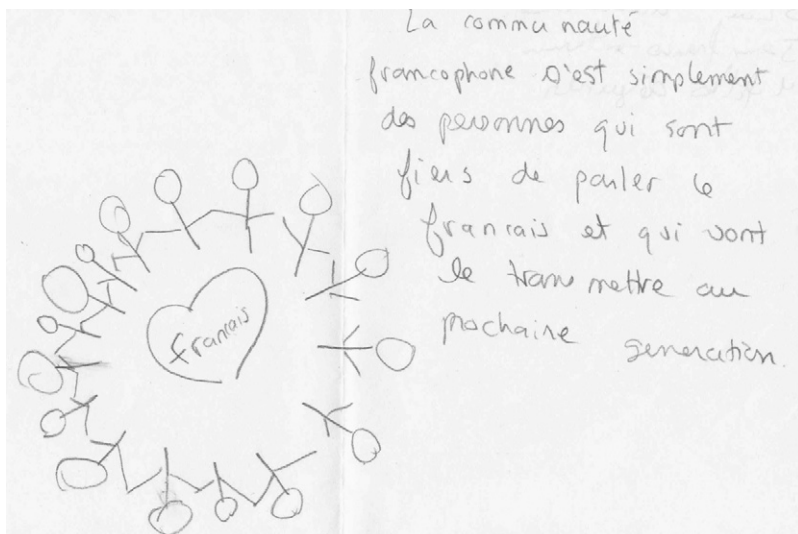 La communauté
francophone s'est simplement
des personnes qui sont
fiers de parler le
francais et qui vont
le transmettre au
prochaine generation.
francais